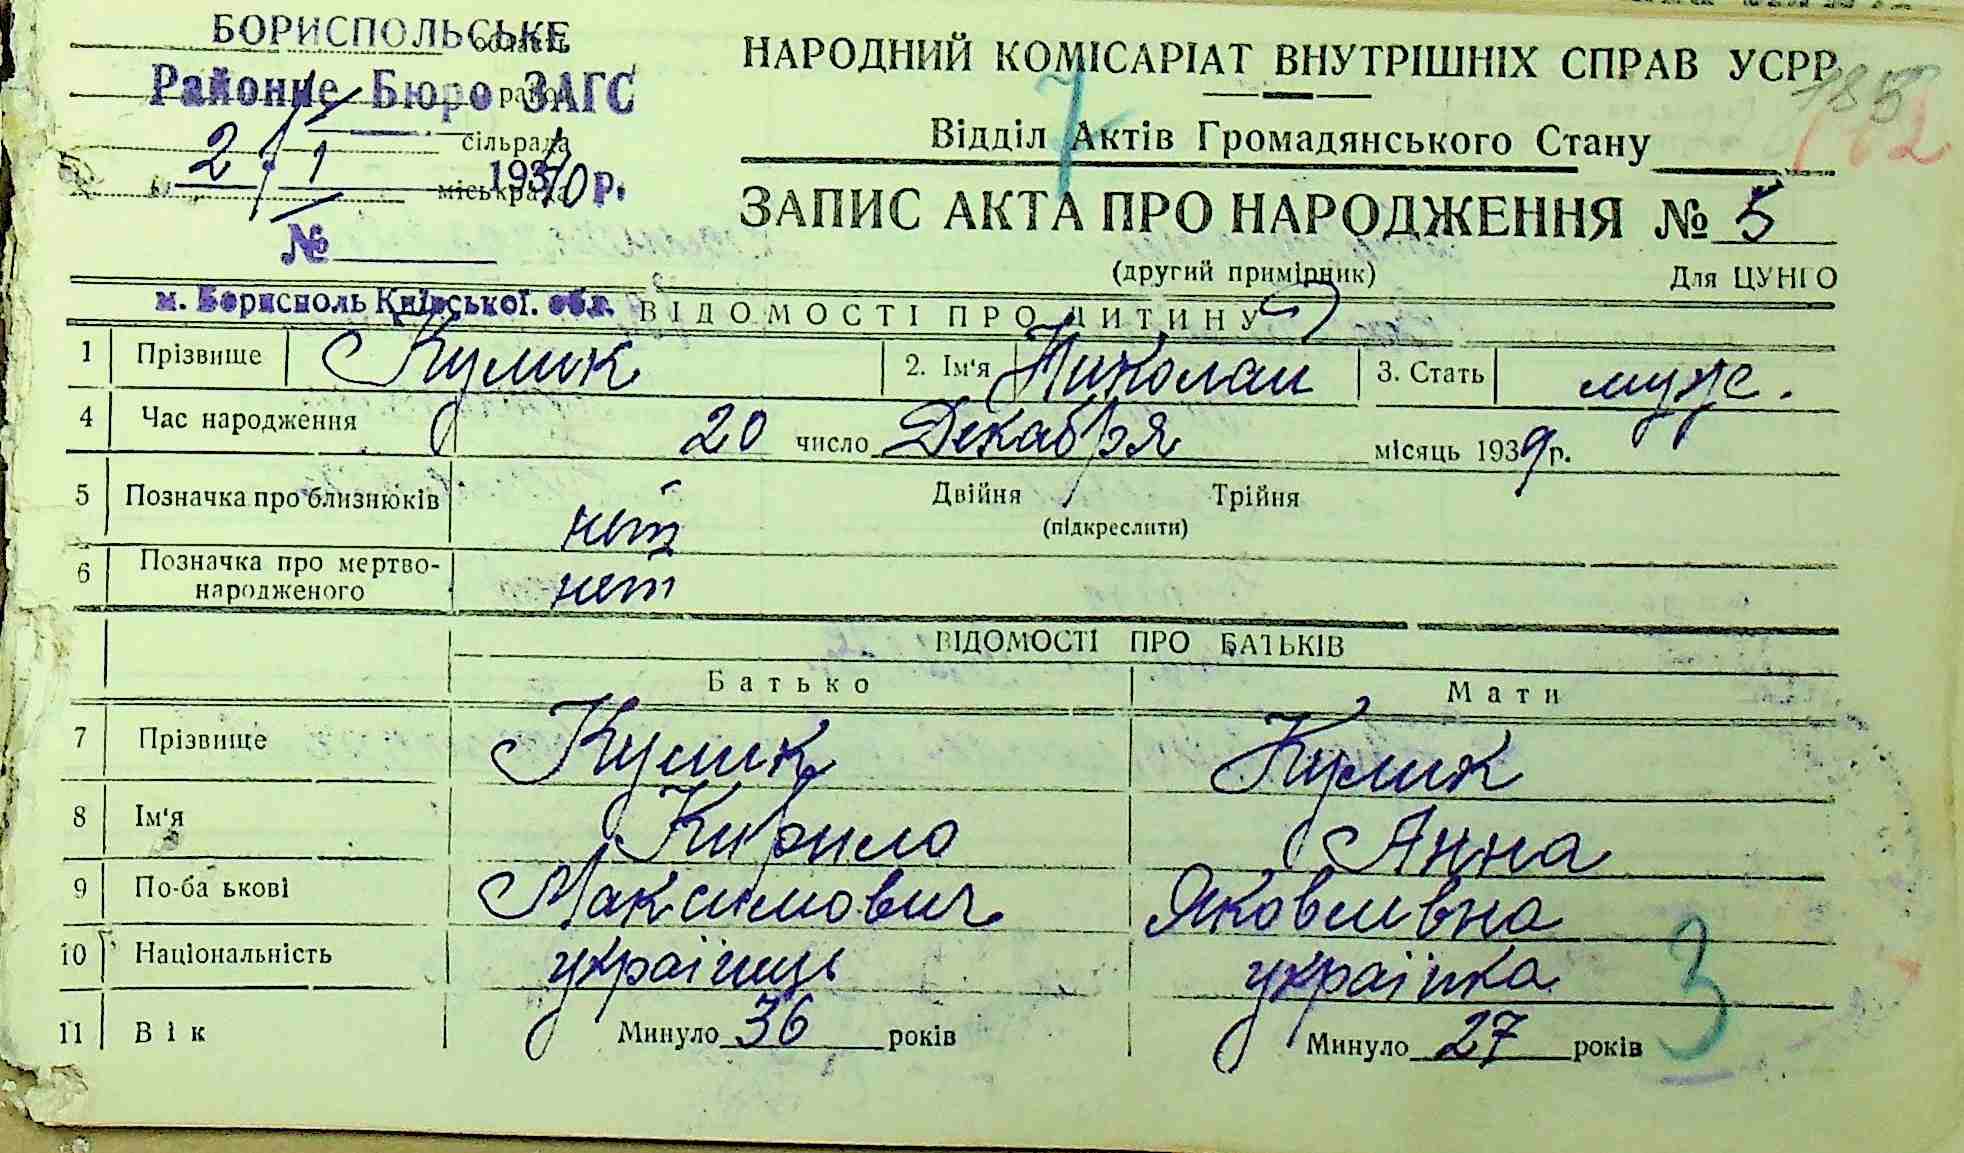 БОРИСПОЛЬСЬКЕ
Районне Бюро ЗАГС
сільрада
2 1 1940 р.
міськрада
№
м. Борисполь Київської. обл.
НАРОДНИЙ КОМІСАРІАТ ВНУТРІШНІХ СПРАВ УСРР
185
Відділ Актів Громадянського Стану
7
ЗАПИС АКТА ПРО НАРОДЖЕННЯ № 5
(другий примірник) Для ЦУНГО
ВІДОМОСТІ ПРО ДИТИНУ
1 Прізвище Кулик 2. Ім'я Николай 3. Стать муж.
4 Час народження 20 число Декабря місяць 1939 р.
5 Позначка про близнюків нет Двійня Трійня
(підкреслити)
6 Позначка про мертво-
народженого нет
ВІДОМОСТІ ПРО БАТЬКІВ
Батько Мати
7 Прізвище Кулик Кулик
8 Ім'я Кирило Анна
9 По-ба ькові Максимович Яковливна
10 Національність україниць українка
11 Вік Минуло 36 років Минуло 27 років
3